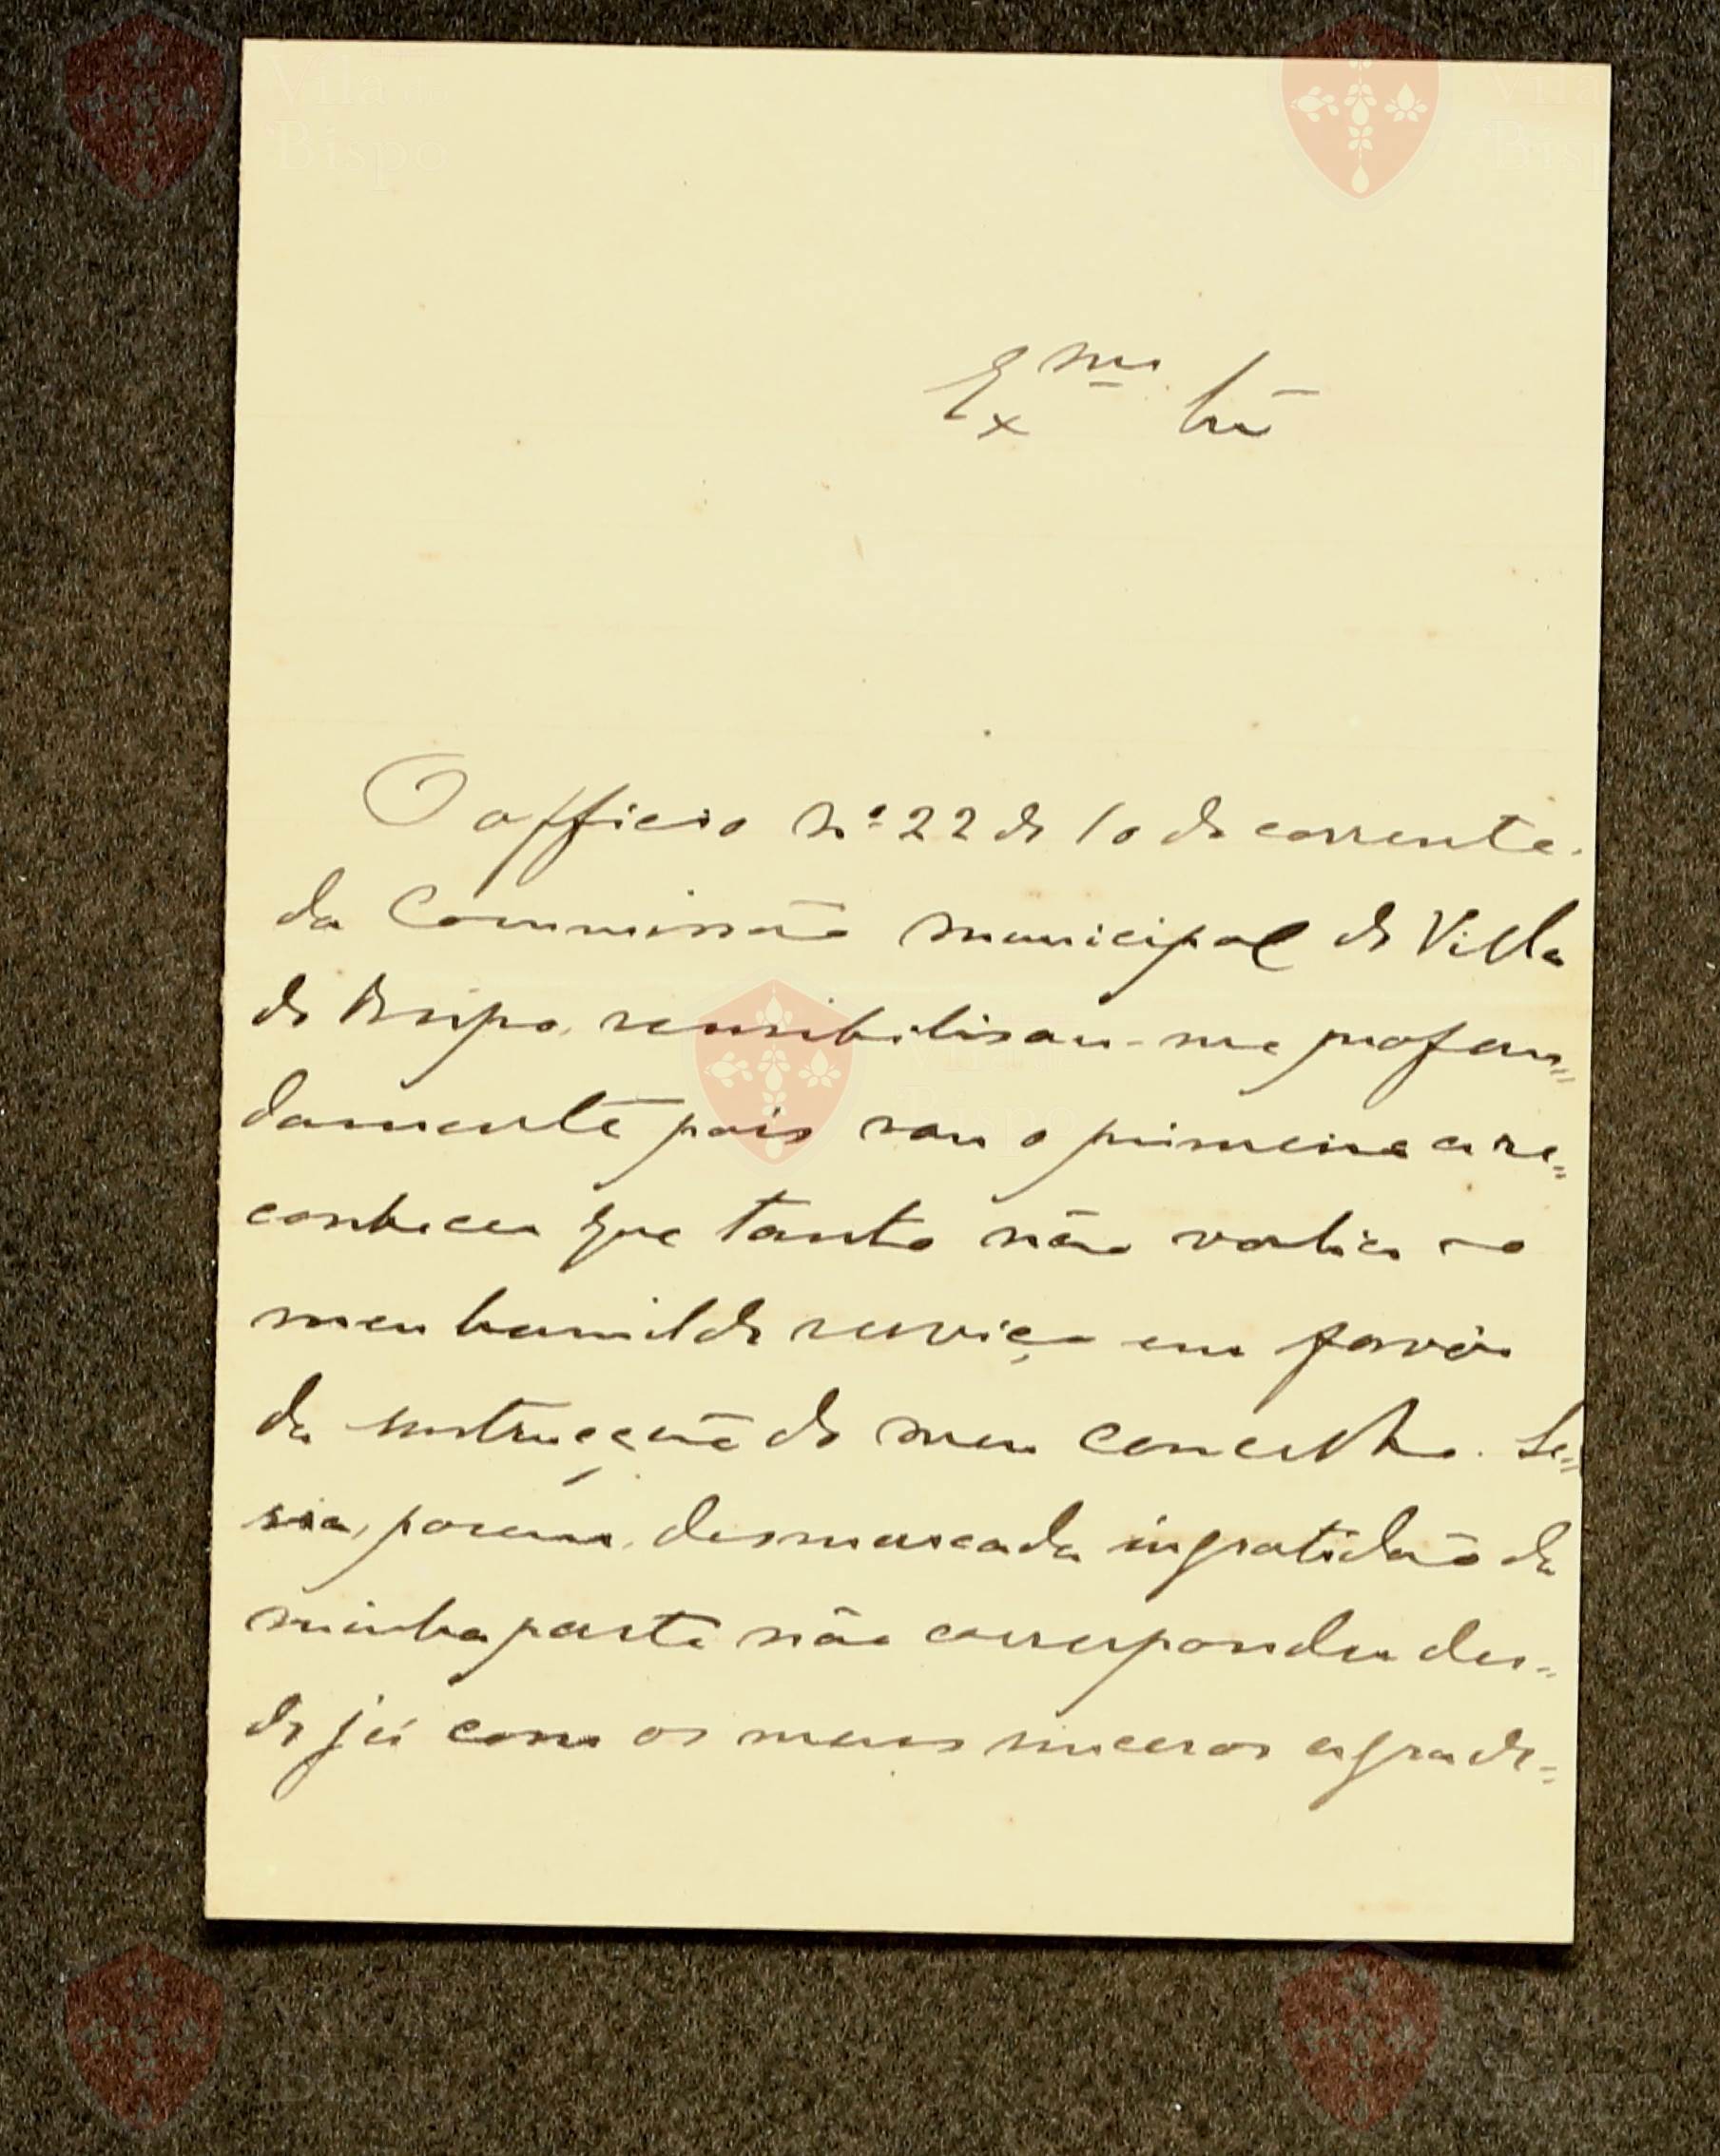 Exmo Snr
O officio nº 22 de 10 do corrente
da Commissão municipal de Villa
do Bispo, sensibilisou-me profun=
damente pois sou o primeiro a re=
conhecer que tanto não valia o
meu humilde serviço em favôr
da instrucção do meu concelho. Se=
ria, porem, desmarcada ingratidão da
minha parte não corresponder des=
de já com os meus sinceros agrade=
Vila do
Bispo
Vila do
Bispo
Vila do
Bispo
Bispo